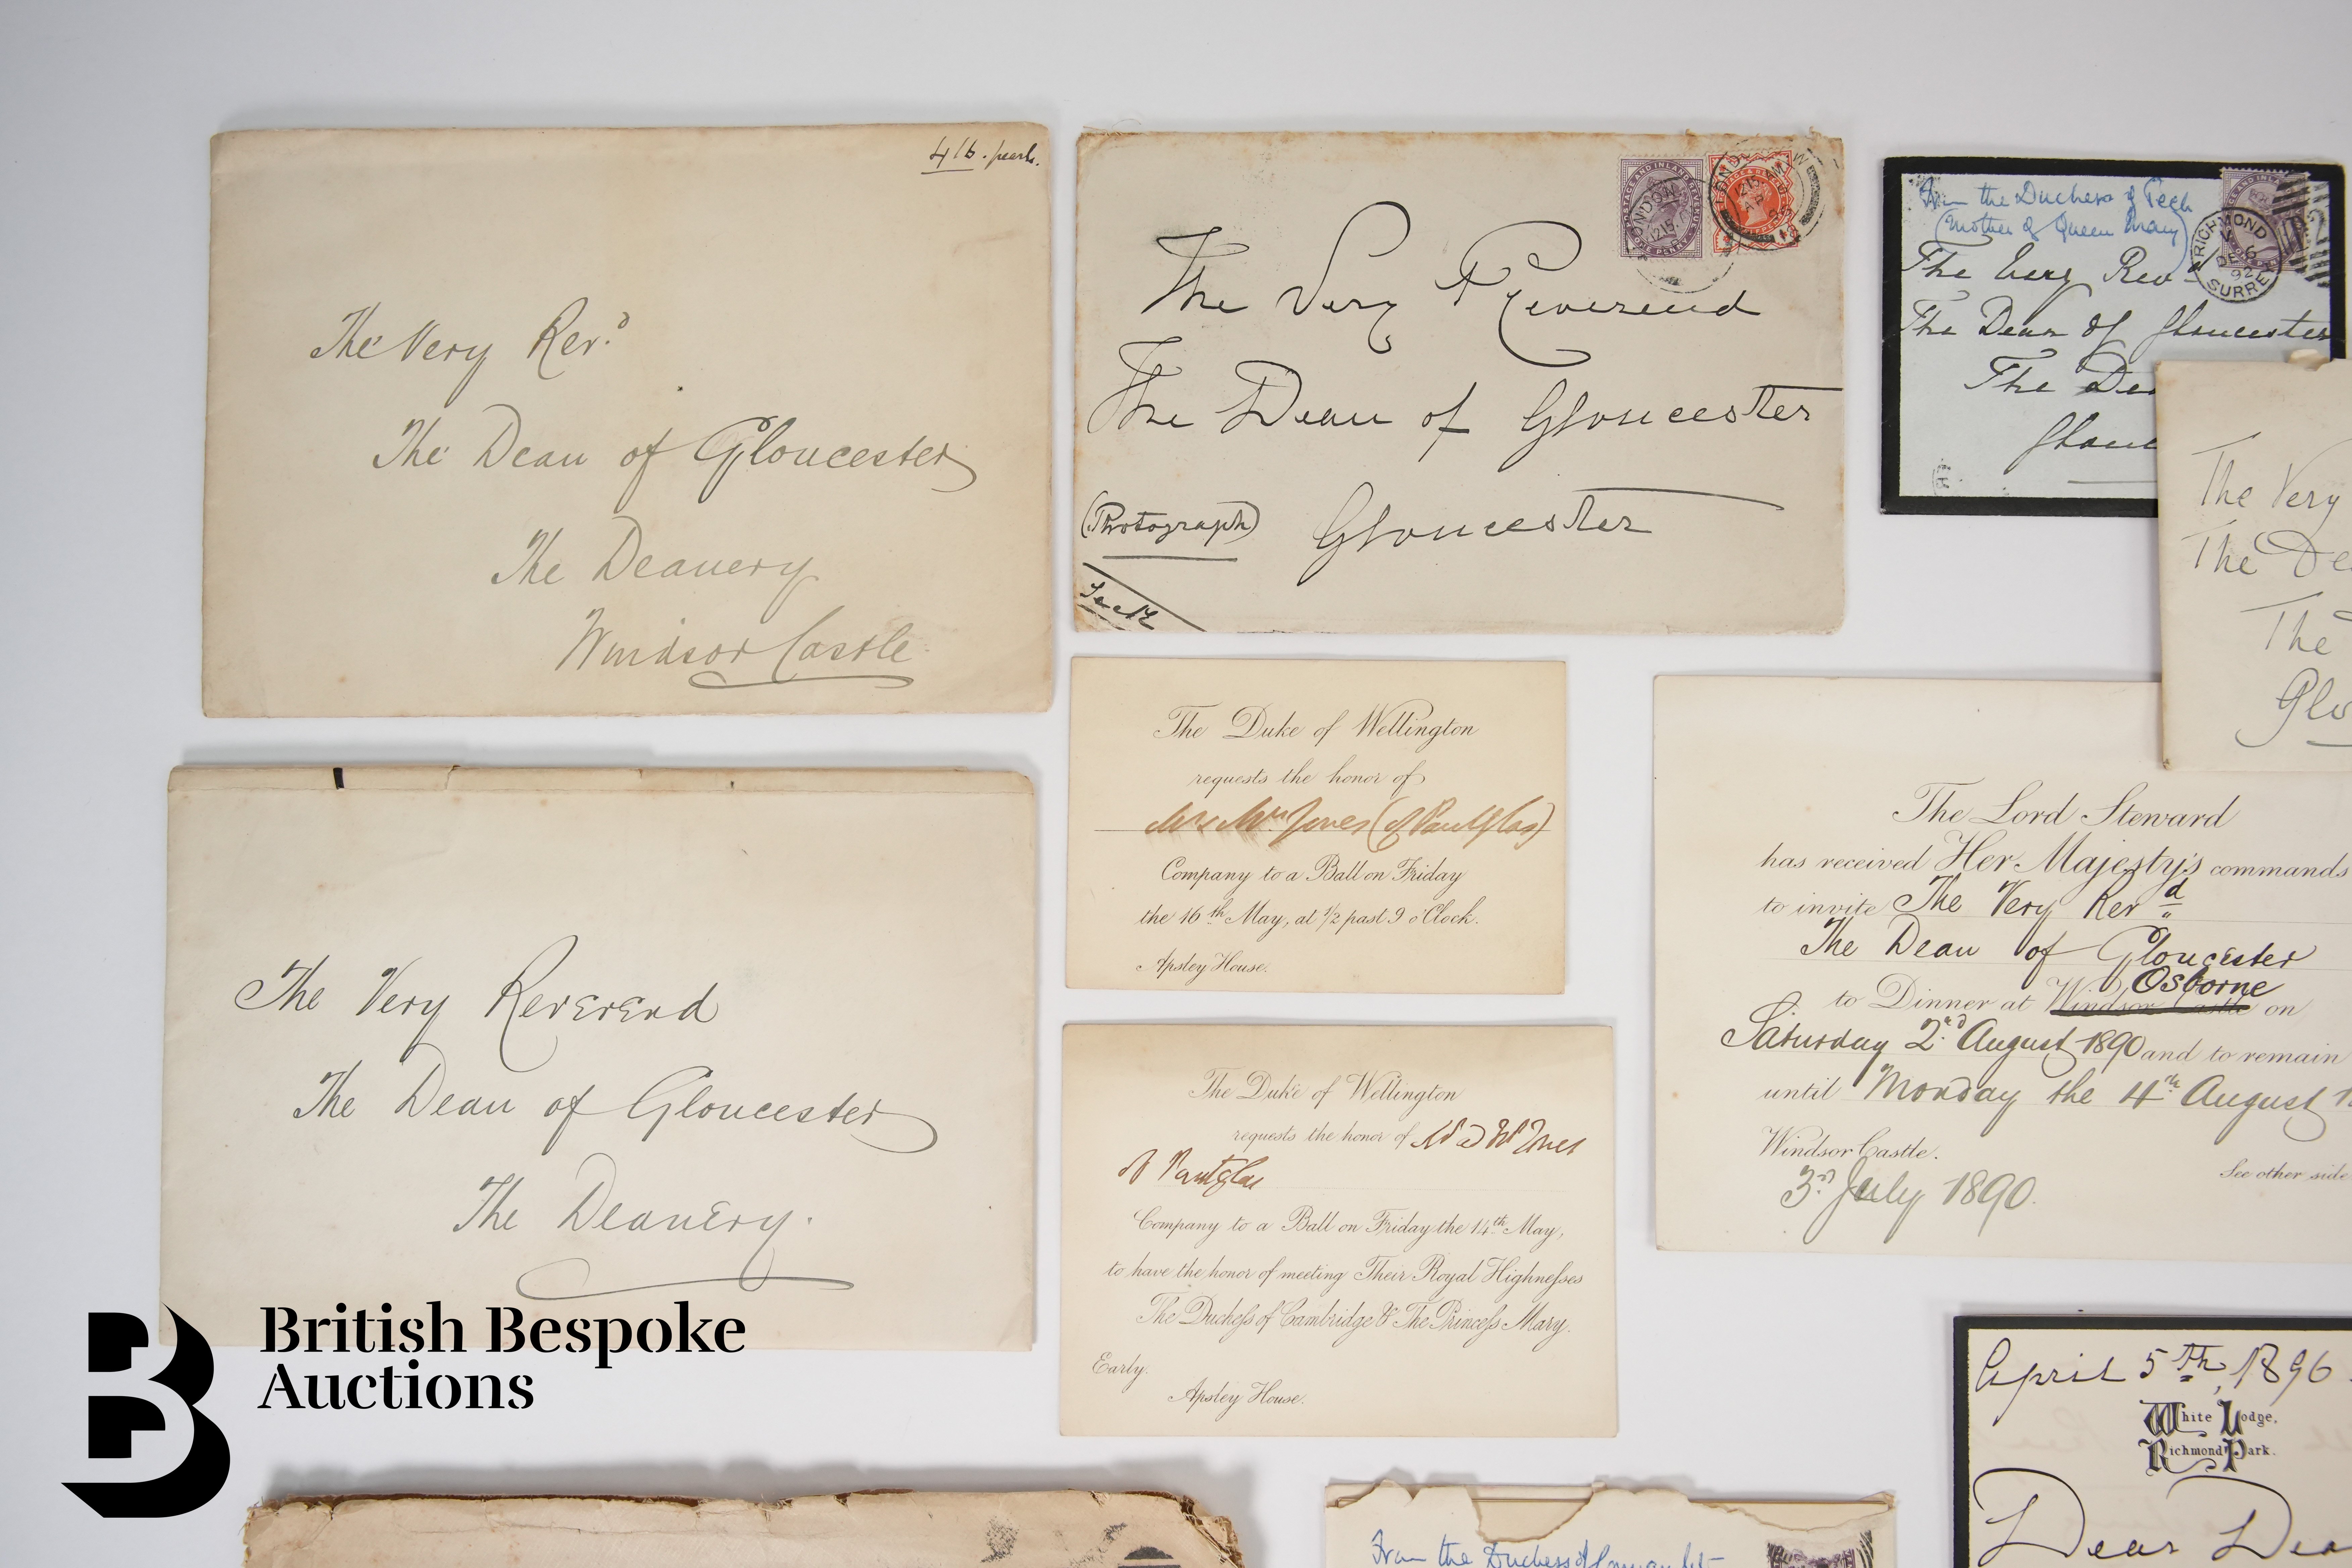 4 lb. pearl.
The Very Rev.d
The Dean of Gloucester
The Deanery
Windsor Castle
LONDON
1215
The Very Reverend
The Dean of Gloucester
(Photograph)
Gloucester
Teck
From the Duchess of Teck
(Mother of Queen Mary)
RICHMOND
DE 6
92
SURREY
The Very Revd
The Dean of Gloucester
The Dea
Glouc
The Very
The De
The
Glo
The Duke of Wellington
requests the honor of
Mrs Wm. Jones (of Pantglas)
Company to a Ball on Friday
the 16th May, at 1/2 past 9 o'Clock.
Apsley House.
The Lord Steward
has received Her Majesty's commands
to invite The Very Revd
The Dean of Gloucester
Osborne
to Dinner at Windsor Castle on
Saturday 2nd August 1890 and to remain
until Monday the 4th August 1
Windsor Castle.
3rd July 1890.
See other side
The Very Reverend
The Dean of Gloucester
The Deanery.
The Duke of Wellington
requests the honor of Jones
Pantglas
Company to a Ball on Friday the 14th May,
to have the honor of meeting Their Royal Highneſses
The Ducheſs of Cambridge & The Princeſs Mary.
Early.
Apsley House.
British Bespoke
Auctions
April 5th, 1896.
White Lodge,
Richmond Park.
Dear Dea
From the Duchess of